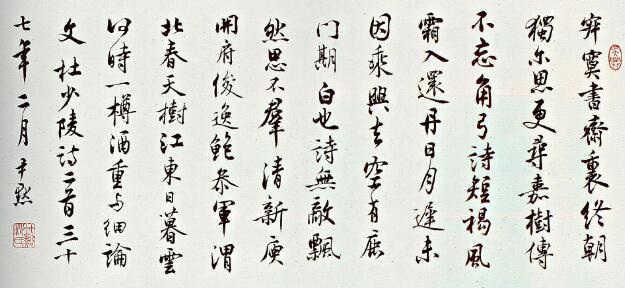 寂寞書齋裏終朝
獨尔思更尋嘉樹傳
不忘角弓詩短褐風
霜入還丹日月遲未
因乘興去空有鹿
門期白也詩無敵飄
然思不羣清新庾
開府俊逸鮑參軍渭
北春天樹江東日暮雲
何時一樽酒重与細論
文杜少陵詩二首三十
七年二月尹默